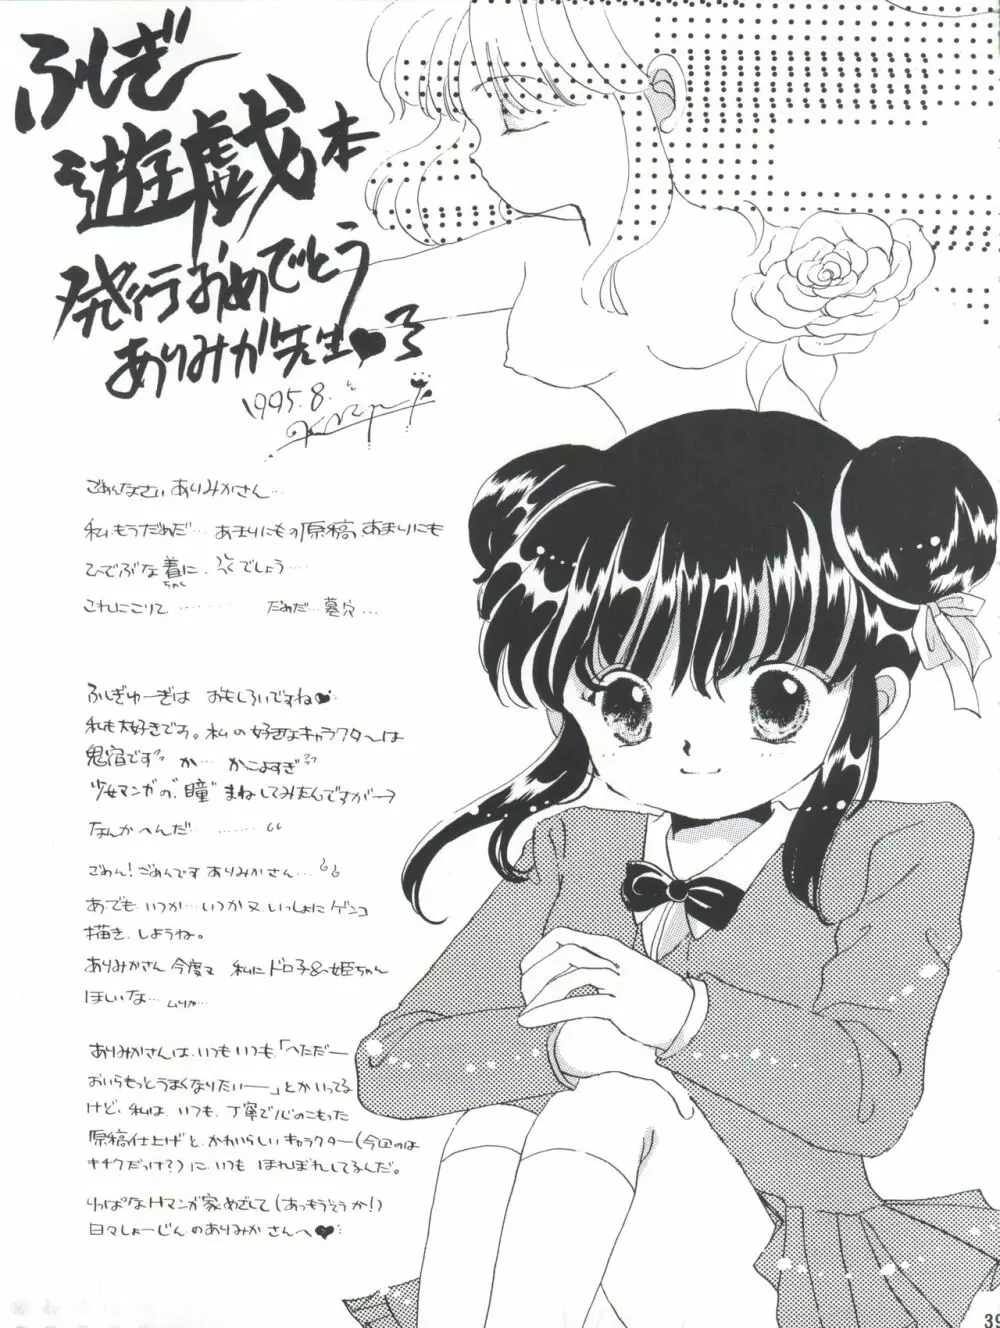 ふしぎ
遊戯本
発行おめでとう
ありみか先生♥
1995.8.
ごめんなさい ありみかさん…
私もうだめだ… あまりにもの原稿、あまりにも
ひでぶな着に、 でしょう…
ちゃく
これにこりて ……… だめだ…墓穴…
ふしぎゆーぎは おもしろいですね♥
私も大好きです。私の好きなキャラクターは
鬼宿です か… かこよすぎ
少女マンガの"瞳"まねしてみたんですが→
なんかへんだ ………
ごめん!ごめんです ありみかさん…
あでも いつか…いつか又 いっしょに ゲンコ
描き しようね。
ありみかさん 今度又 私に ドロ子&姫ちゃん
ほしいな… ムリか…
ありみかさんは、いつもいつも「へただー
おいらもっとうまくなりたいー」とかいってる
けど、私は、いつも、丁寧で心のこもった
原稿仕上げと、かわいらしいキャラクター(今回のは
キチクだっけ?)に、いつも ほれぼれしてるんだ。
りっぱなHマンガ家めざして(あっもうそうか!)
日々しょーじんのありみかさんへ♥
39